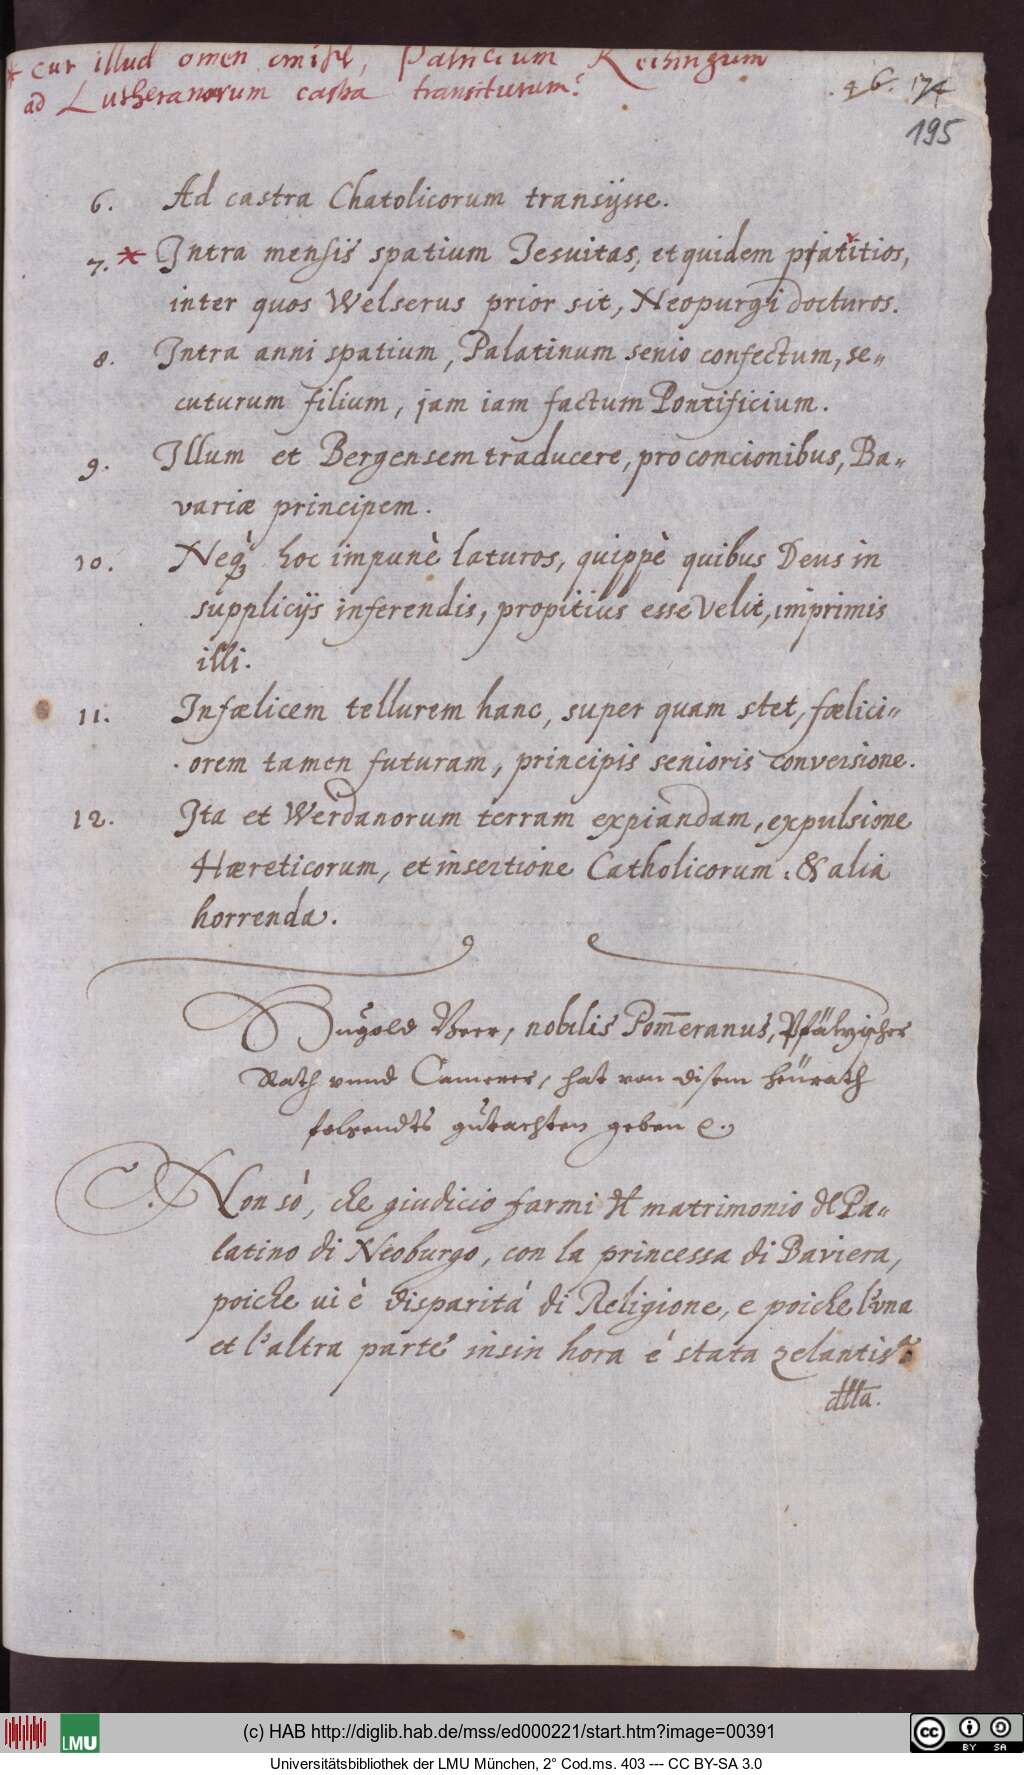 * Cur illud omen omisit, Patricium Reihingum
ad Lutheranorum castra transiturum?
46. 174
195
6. Ad castra Chatolicorum transijsse.
7. * Intra mensis spatium Jesuitas, et quidem
inter quos Welserus prior sit, Neopurgi docturos.
8. Intra anni spatium, Palatinum senio confectum, se„
cuturum filium, jam iam factum Pontificium.
9. Illum et Bergensem traducere, pro concionibus, Ba„
variæ principem.
10. Neq₃ hoc impunè laturos, quippè quibus Deus in
supplicijs inferendis, propitius esse Velit, imprimis
illi.
11. Infælicem tellurem hanc, super quam stet, fælici„
orem tamen futuram, principis senioris conversione.
12. Ita et Werdanorum terram expiandam, expulsione
Hæreticorum, et insertione Catholicorum. & alia
horrenda.
nobilis Pom̄eranus, Pfältzischer
Rath vnnd Camerer, hat von disem heürath
folgendts gutachten geben
Non só, che giudicio farmi del matrimonio del Pa„
latino di Neoburgo, con la princessa di Baviera,
poiche ui è disparitá di Religione, e poiche l'vna
et l'altra parte insin hora é stata
della.
(c) HAB http://diglib.hab.de/mss/ed000221/start.htm?image=00391
LMU
cc BY SA
Universitätsbibliothek der LMU München, 2° Cod.ms. 403 --- CC BY-SA 3.0